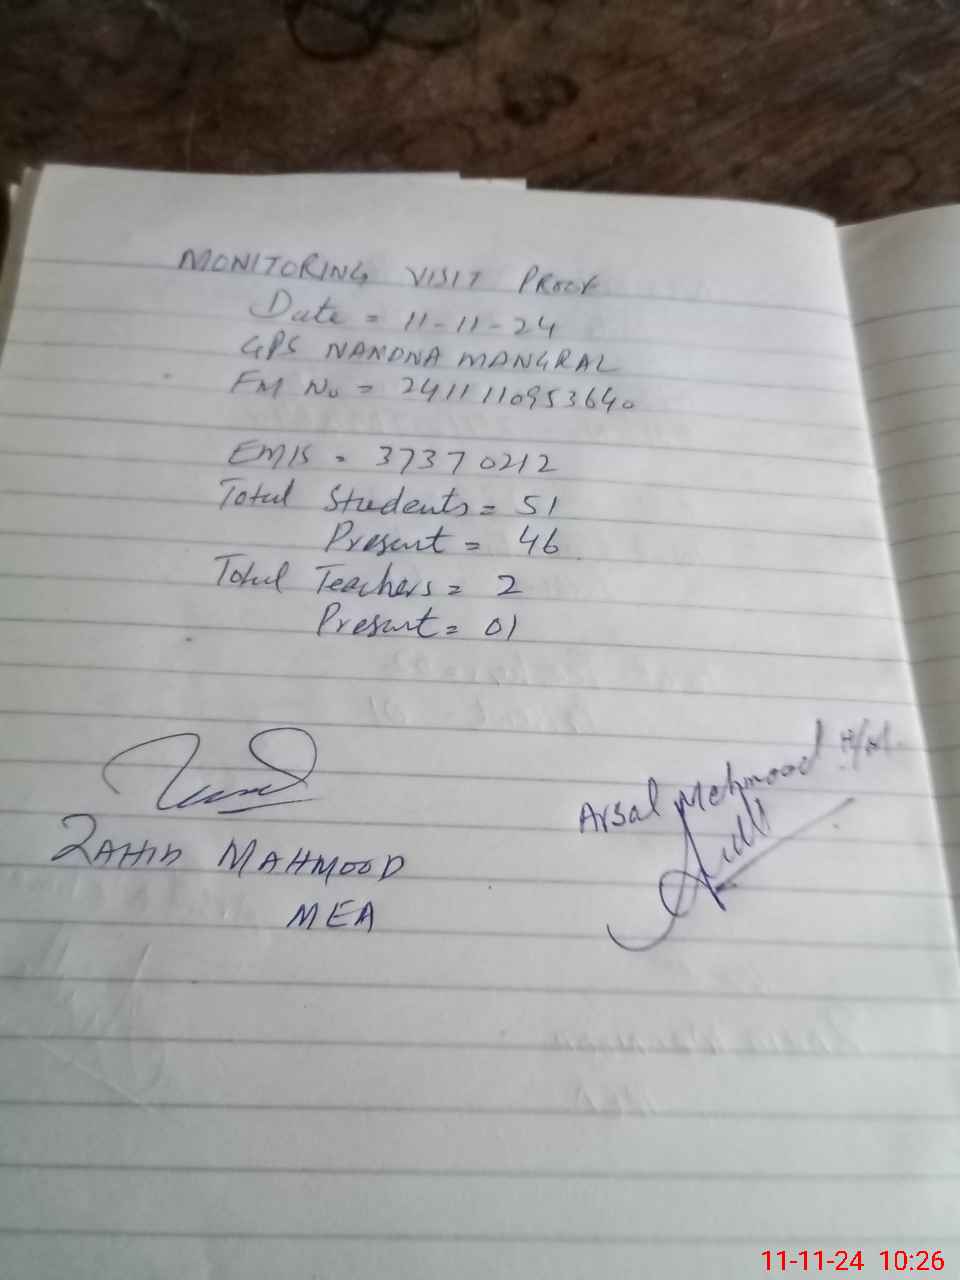 MONITORING VISIT PROOF
Date = 11-11-24
GPS NANDNA MANGRAL
FM No = 2411110953640
EMIS = 37370212
Total Students = 51
Present = 46
Total Teachers = 2
Present = 01
Arsal Mehmood H/M.
ZAHID MAHMOOD
MEA
11-11-24 10:26